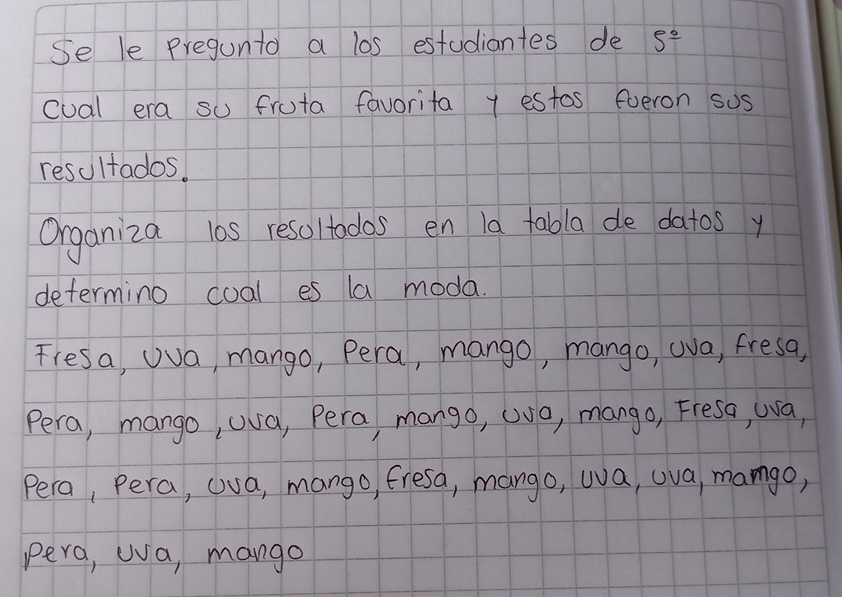 Se le pregunto a los estudiantes de 5º
Cual era su fruta favorita y estos fueron sus
resultados.
Organiza los resultados en la tabla de datos y
determino cual es la moda.
Fresa, uva, mango, Pera, mango, mango, uva, fresa,
Pera, mango, uva, Pera, mango, uva, mango, Fresa, uva,
Pera, Pera, uva, mango, fresa, mango, uva, uva, mamgo,
Pera, uva, mango